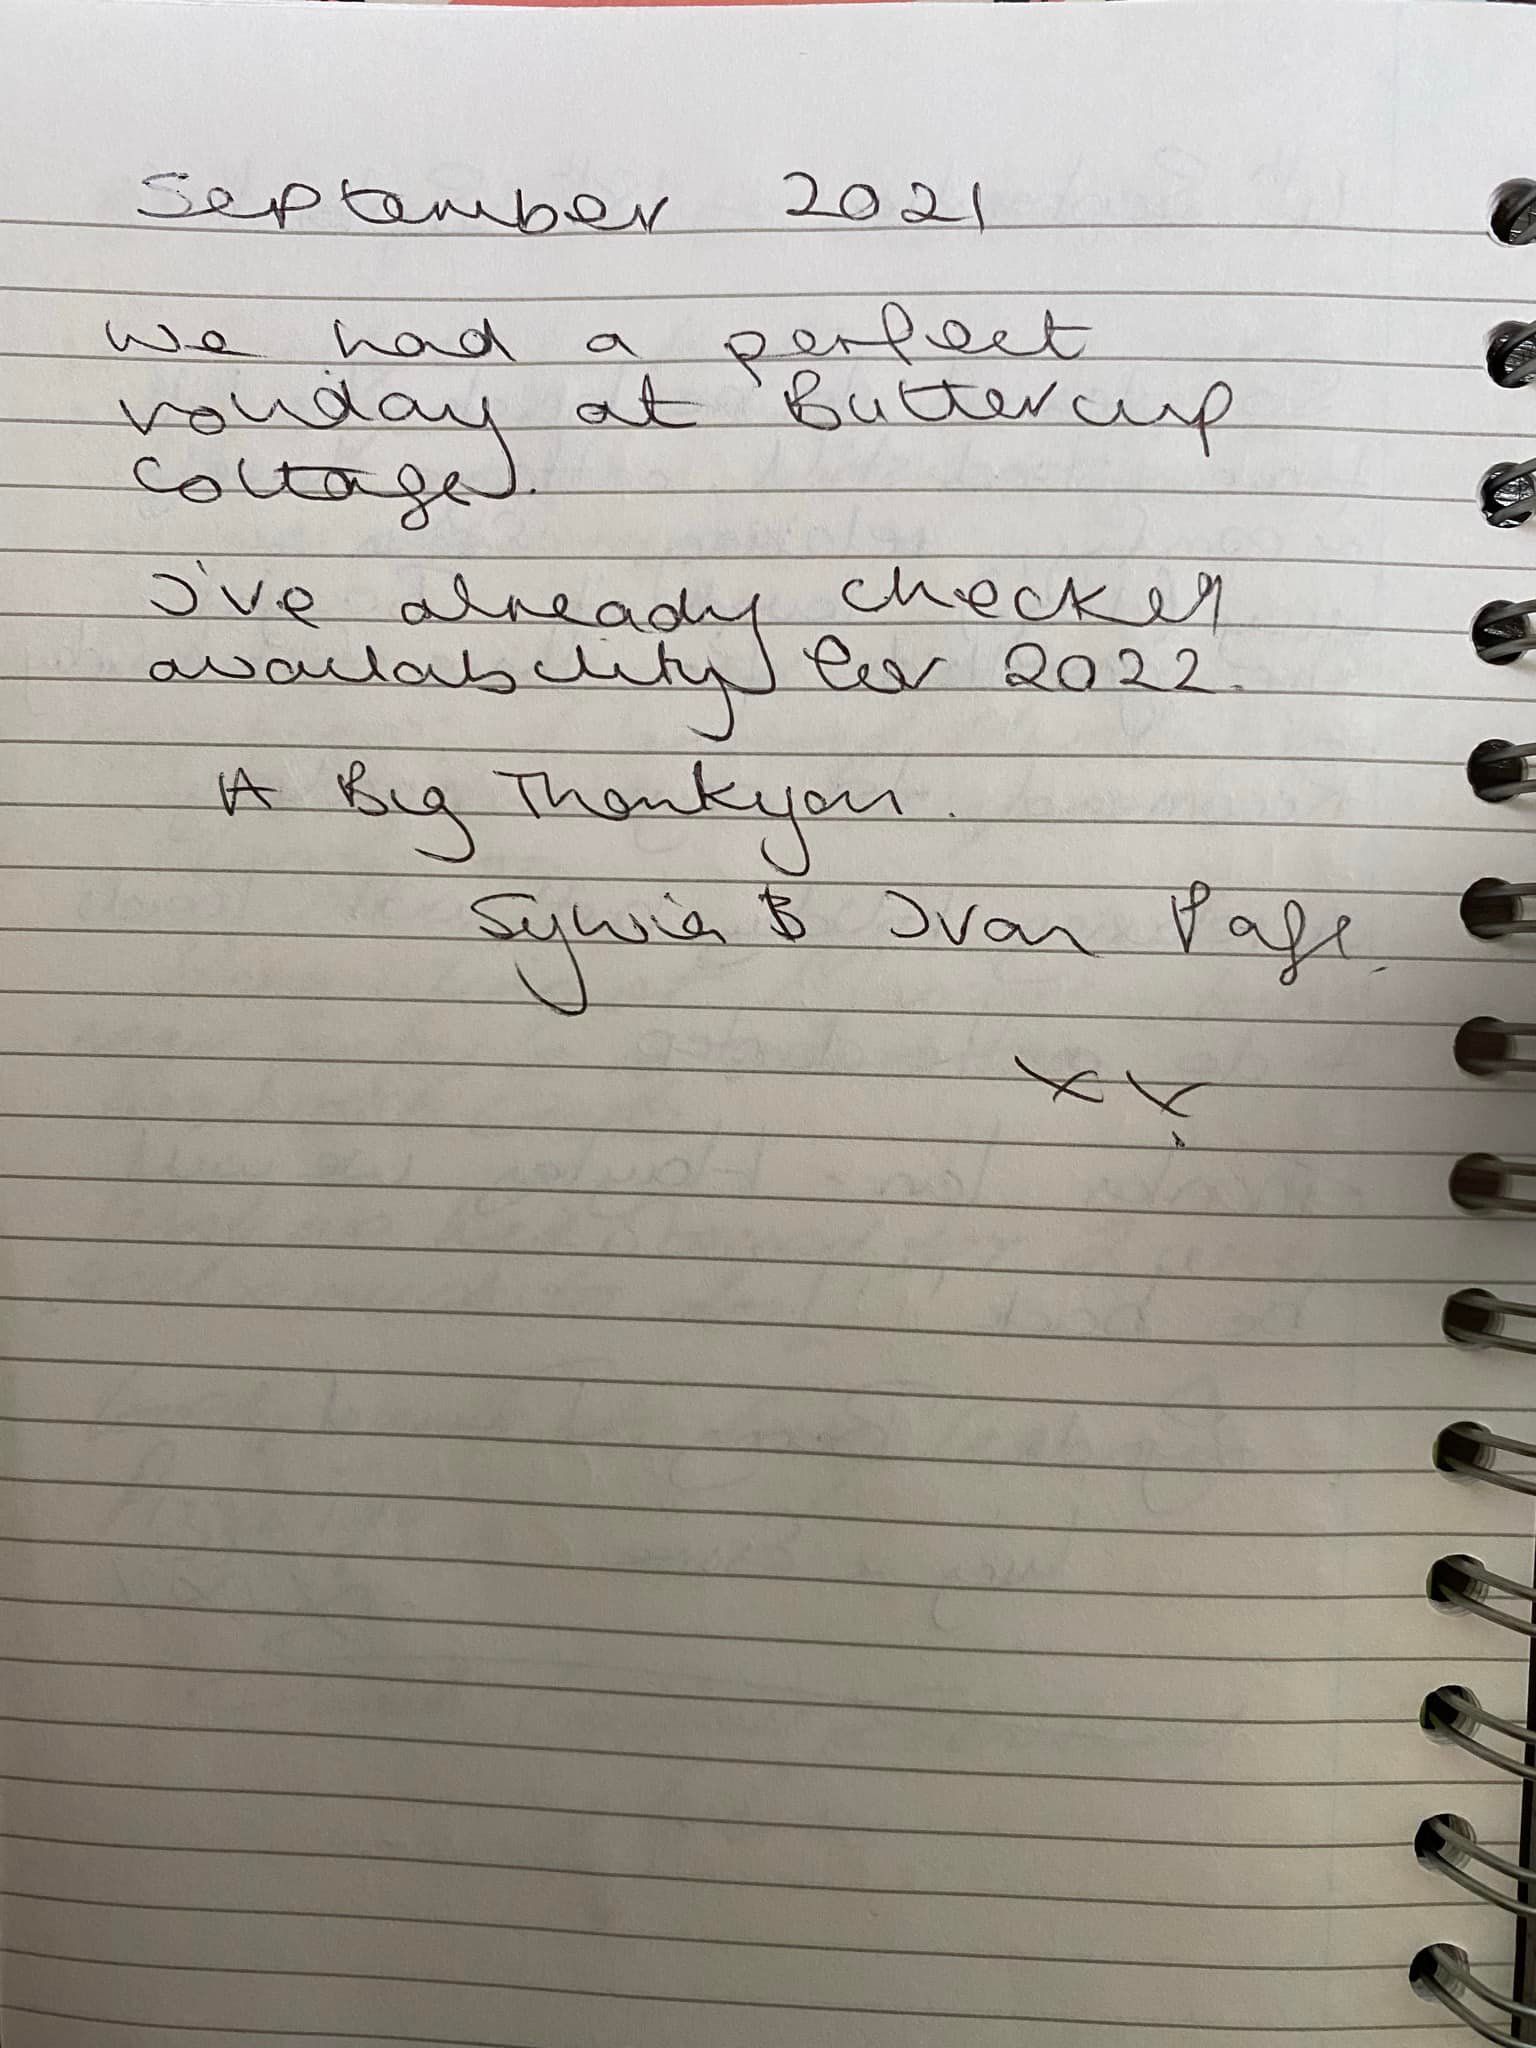 September 2021
We had a perfect
holiday at Buttercup
Cottage.
I've already checked
availability for 2022.
A Big Thankyou.
Sylvia & Ivan Page.
xx